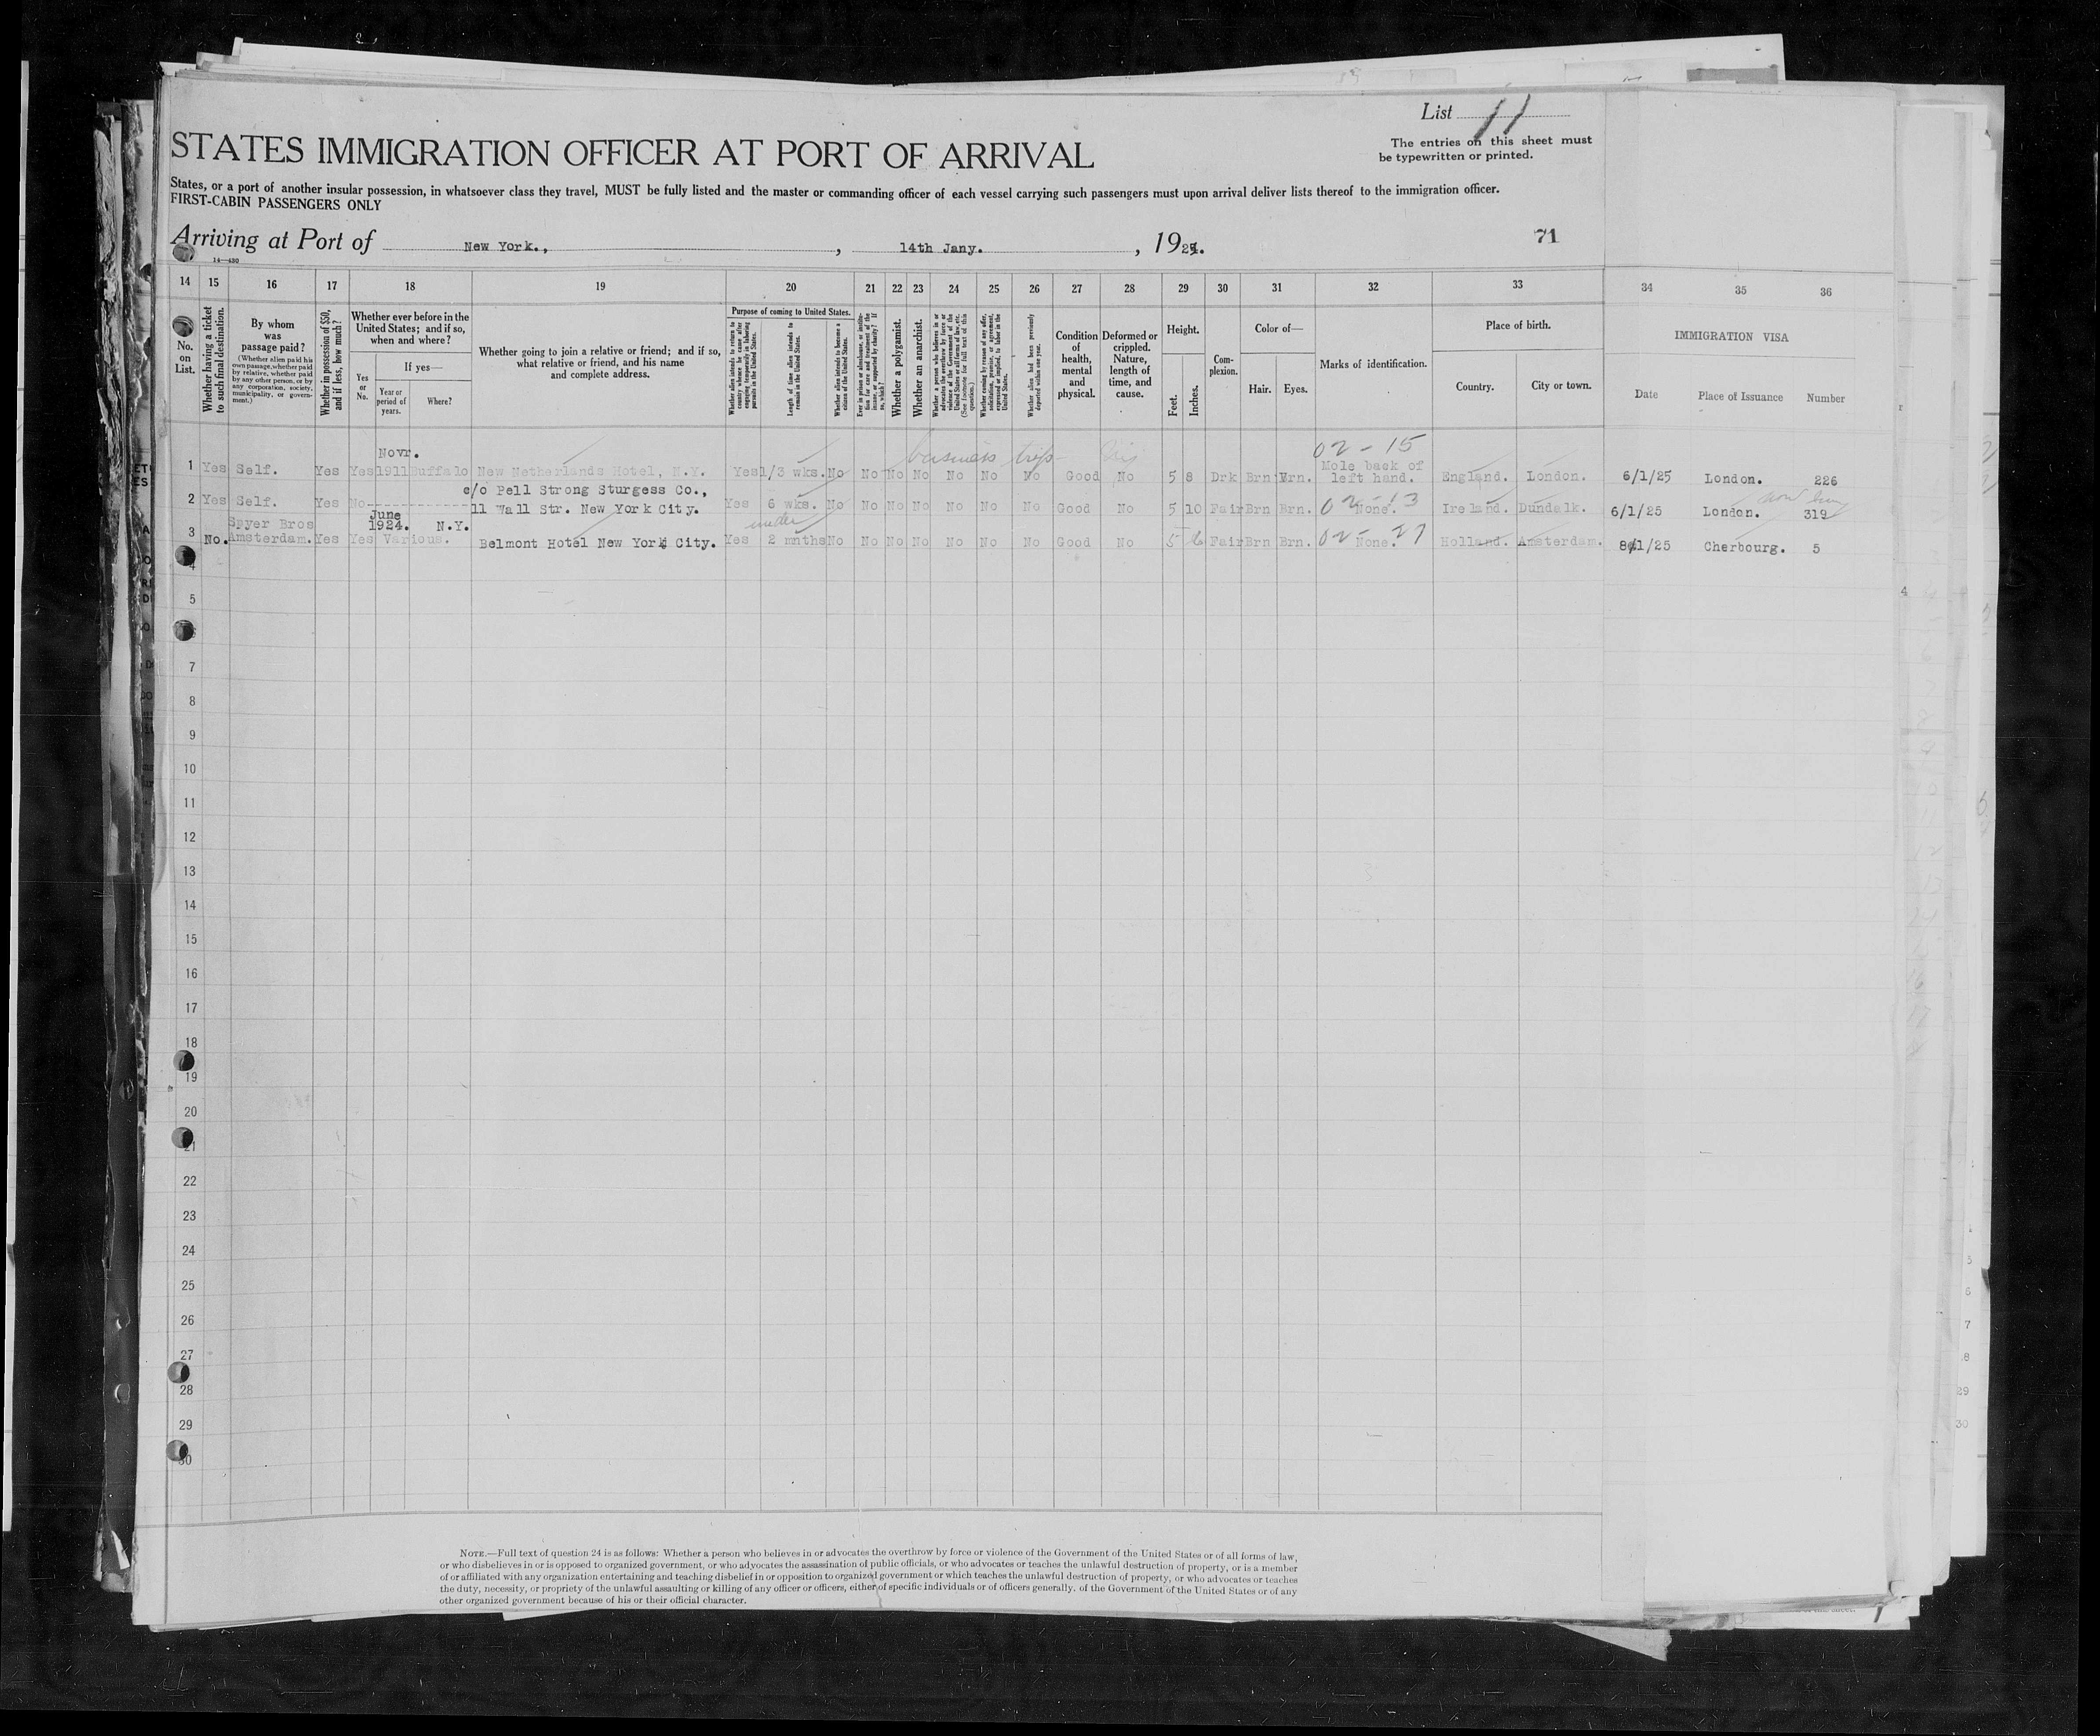 List 11
The entries on this sheet must
be typewritten or printed.
STATES IMMIGRATION OFFICER AT PORT OF ARRIVAL
States, or a port of another insular possession, in whatsoever class they travel, MUST be fully listed and the master or commanding officer of each vessel carrying such passengers must upon arrival deliver lists thereof to the immigration officer.
FIRST-CABIN PASSENGERS ONLY
Arriving at Port of New York., , 14th Jany. , 1925. 71
14—430
14 15 16 17 18 19 20 21 22 23 24 25 26 27 28 29 30 31 32 33 34 35 36
No. on List.
Whether having a ticket to such final destination.
By whom was passage paid?
(Whether alien paid his own passage, whether paid by relative, whether paid by any other person, or by any corporation, society, municipality, or government.)
Whether in possession of $50, and if less, how much?
Whether ever before in the United States; and if so, when and where?
Yes or No.
If yes—
Year or period of years.
Where?
Whether going to join a relative or friend; and if so, what relative or friend, and his name and complete address.
Purpose of coming to United States.
Whether alien intends to return to country whence he came after engaging temporarily in laboring pursuits in the United States.
Length of time alien intends to remain in the United States.
Whether alien intends to become a citizen of the United States.
Ever in prison or almshouse, or institution for care and treatment of the insane, or supported by charity? If so, which?
Whether a polygamist.
Whether an anarchist.
Whether a person who believes in or advocates the overthrow by force or violence of the Government of the United States or all forms of law, etc. (See footnote for full text of this question.)
Whether coming by reason of any offer, solicitation, promise, or agreement, expressed or implied, to labor in the United States.
Whether alien had been previously deported within one year.
Condition of health, mental and physical.
Deformed or crippled. Nature, length of time, and cause.
Height.
Feet.
Inches.
Complexion.
Color of—
Hair.
Eyes.
Marks of identification.
Place of birth.
Country.
City or town.
IMMIGRATION VISA
Date
Place of Issuance
Number
business trip
02-15
Novr.
1 Yes Self. Yes Yes 1911 Buffalo New Netherlands Hotel, N.Y. Yes 1/3 wks. No No No No No No No Good No 5 8 Drk Brn Brn. Mole back of left hand. England. London. 6/1/25 London. 226
c/o Pell Strong Sturgess Co.,
2 Yes Self. Yes No 11 Wall Str. New York City. Yes 6 wks. No No No No No No No Good No 5 10 Fair Brn Brn. None. 02-13 Ireland. Dundalk. 6/1/25 London. 319
June
1924. N.Y.
under
3 No. Spyer Bros Amsterdam. Yes Yes Various. Belmont Hotel New York City. Yes 2 mnths No No No No No No No Good No 5 6 Fair Brn Brn. None. 02-27 Holland. Amsterdam. 8/1/25 Cherbourg. 5
4
5
7
8
9
10
11
12
13
14
15
16
17
18
19
20
21
22
23
24
25
26
27
28
29
30
NOTE.—Full text of question 24 is as follows: Whether a person who believes in or advocates the overthrow by force or violence of the Government of the United States or of all forms of law,
or who disbelieves in or is opposed to organized government, or who advocates the assassination of public officials, or who advocates or teaches the unlawful destruction of property, or is a member
of or affiliated with any organization entertaining and teaching disbelief in or opposition to organized government or which teaches the unlawful destruction of property, or who advocates or teaches
the duty, necessity, or propriety of the unlawful assaulting or killing of any officer or officers, either of specific individuals or of officers generally, of the Government of the United States or of any
other organized government because of his or their official character.